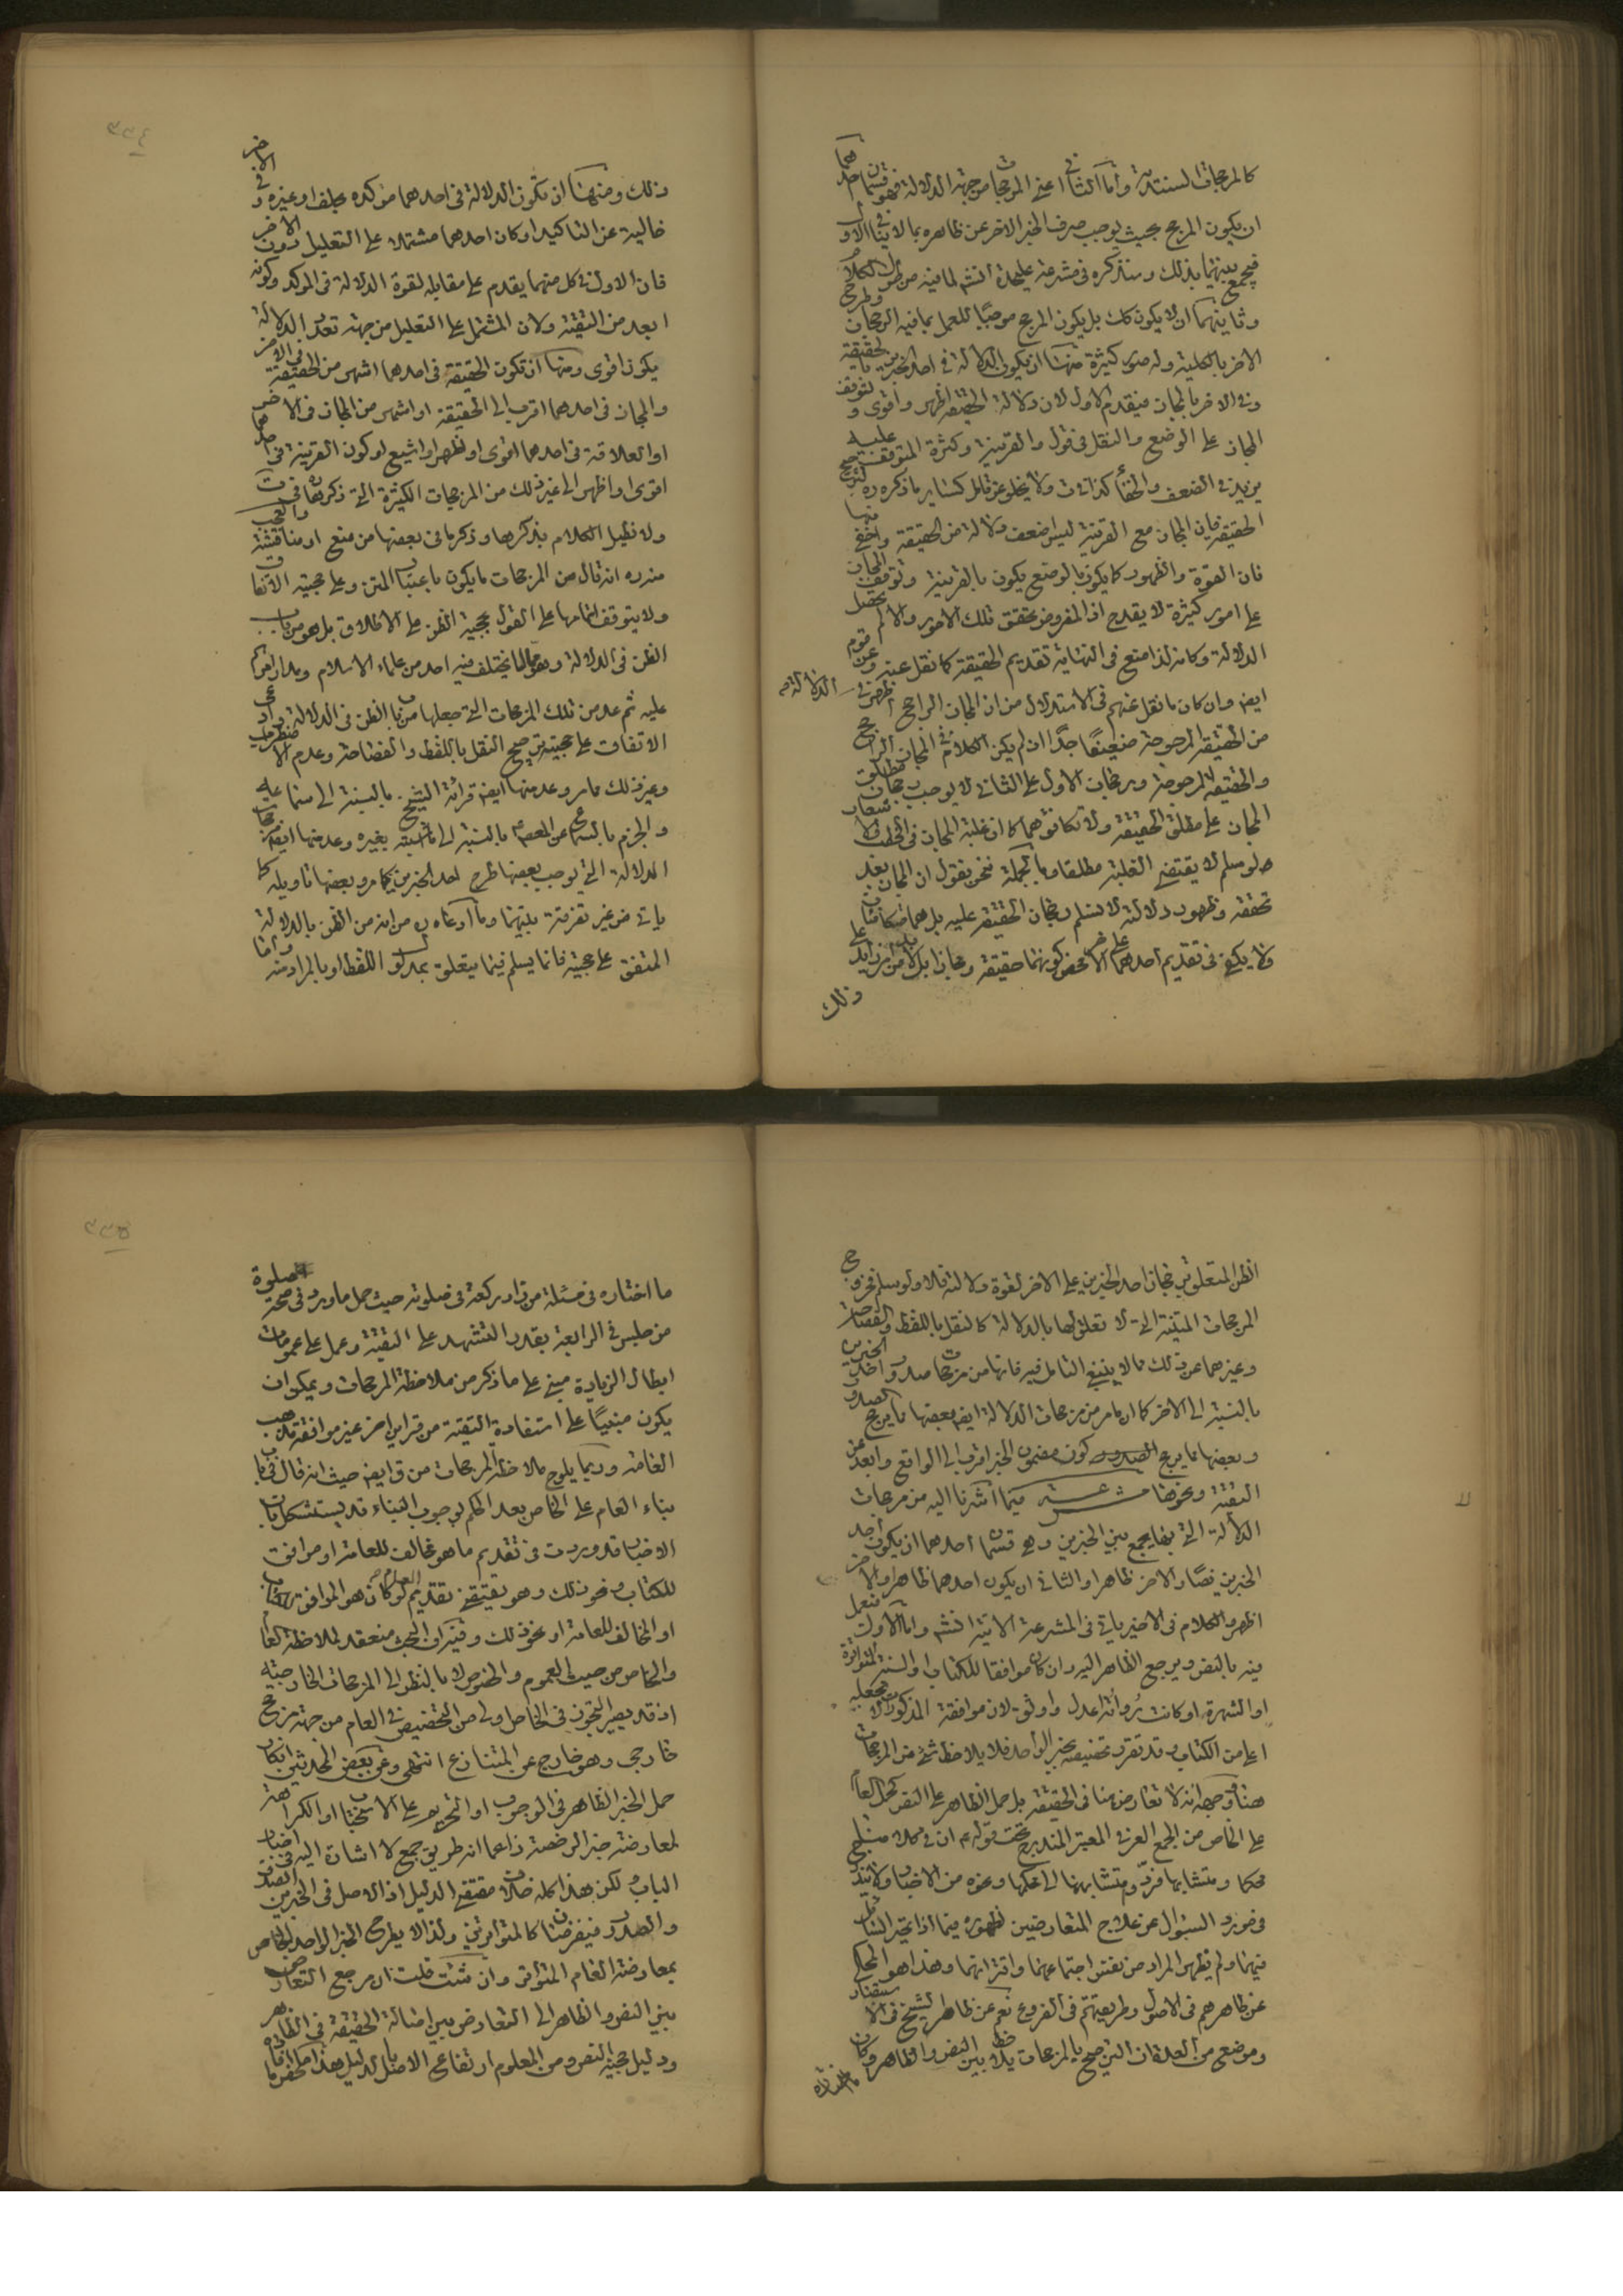 كالمرجحات السندية وأما الثاني اعني المرجحات من جهة الدلالة فهو قسمان احدهما
ان يكون المرجح بحيث يوجب صرف الخبر الاخر عن ظاهره بما لا ينافي الاول
فيجمع بينهما بذلك وسنذكره في مشرعة عليحدة انشم لما فيه من طول الكلام
وثانيهما ان لا يكون كك بل يكون المرجح موجبا للعمل بما فيه الرجحان وطرح
الاخر بالكلية وله صور كثيرة منها ان يكون الدلالة في احد الخبرين بالحقيقة
وفي الاخر بالمجاز فيقدم الاول لان دلالة الحقيقة اظهر واقوى ولتوقف
المجاز على الوضع والنقل في قول والقرينة وكثرة المتوقف عليه
يزيد في الضعف والخفأ كذا في ولا يخلو عن تامل كساير ما ذكره ره لترجيح
الحقيقة فان المجاز مع القرينة ليس اضعف دلالة من الحقيقة واخفى منها
فان القوة والظهور كما يكون بالوضع يكون بالقرينة وتوقف المجاز
على امور كثيرة لا يقدح اذ المفروض تحقق تلك الامور والا لم يحصل
الدلالة وكانه لذا منع في النهاية تقديم الحقيقة كما نقل عنه وعن قوم
ايضا وان كان ما نقل عنهم في الاستدلال من ان المجاز الراجح اظهر في الدلالة
من الحقيقة المرجوحة ضعيفا جدا اذ لم يكن الكلام في المجاز الراجح
والحقيقة المرجوحة ورجحان الاول على الثاني لا يوجب رجحان مطلق
المجاز على مطلق الحقيقة ولا تكافؤهما كما ان غلبة المجاز في
لو سلم لا يقتضي الغلبة مطلقا وبالجملة نحن نقول ان المجاز بعد
تحققه وظهور دلالته لا نسلم رجحان الحقيقة عليه بل هما متكافئان
ولا يكفي في تقديم احدهما على الاخر محض كونهما حقيقة ومجازا بل لابد من امر زايد على
ذلك
ذلك ومنها ان تكون الدلالة في احدهما مؤكدة بحلف او غيره وفي الاخر
خالية عن التاكيد او كان احدهما مشتملا على التعليل دون الاخر
فان الاول في كل منهما يقدم على مقابله لقوة الدلالة في المؤكد وكونه
ابعد من التقية ولان المشتمل على التعليل من جهة تعدد الدلالة
يكون اقوى ومنها ان تكون الحقيقة في احدهما اشهر من الحقيقة في الاخر
والمجاز في احدهما اقرب الى الحقيقة او اشهر من المجاز في الاخر
او العلاقة في احدهما اقوى او اظهر او اشيع او كون القرينة في احدهما
اقوى او اظهر الى غير ذلك من المرجحات الكثيرة التي ذكرناها في
ولا نطيل الكلام بذكرها وذكر ما في بعضها من منع او مناقشة والعجب
منه ره انه قال من المرجحات ما يكون باعتبار المتن وعلى حجيته الاتفاق
ولا يتوقف اتمامها على القول بحجية الظن على الاطلاق بل هو من باب
الظن في الدلالة وهو مما لم يختلف فيه احد من علماء الاسلام ومدار امورهم
عليه ثم عد من تلك المرجحات التي جعلها من باب الظن في الدلالة وادعى
الاتفاق على حجيته ترجيح النقل باللفظ والفصاحة وعدم الاضطراب
وغير ذلك مما مر وعد منها ايضا قرائة الشيخ بالنسبة الى سماعه عليه
والجزم بالسماع عن المعصوم بالنسبة الى ما ثبته بغيره وعد منها ايضا
الدلالة التي يوجب بعضها طرح احد الخبرين كما مر وبعضها تاويله كما
ياتي من غير تفرقة بينهما وما ادعاه من انه من الظن بالدلالة
المتفق على حجيته فانما يسلم فيما يتعلق بمدلول اللفظ او بالمراد منه واما
الظن المتعلق بترجحان احد الخبرين على الاخر لقوة دلالته فلا ولو سلم فخروج
المرجحات المتنية التي لا تعلق لها بالدلالة كالنقل باللفظ والفصاحة
وغيرهما عن ذلك مما لا ينبغي التامل فيه فانها من مرجحات صدور احد الخبرين
بالنسبة الى الاخر كما ان ما مر من مرجحات الدلالة ايضا بعضها ما يرجح الصدور
وبعضها ما يرجح كون مضمون الخبر اقرب الى الواقع وابعد عن
التقية ونحوها مشرعة فيما اشرنا اليه من مرجحات
الدلالة التي بها يجمع بين الخبرين وهي قسمان احدهما ان يكون احد
الخبرين نصا والاخر ظاهرا والثاني ان يكون احدهما ظاهرا والاخر
اظهر والكلام في الاخير ياتي في المشرعة الاتية انشم واما الاول فيعمل
فيه بالنص ويرجع الظاهر اليه وان كان موافقا للكتاب او السنة المتواترة
او الشهرة او كانت رواته اعدل واوثق لان موافقة المذكورات لا تجعله
اعلى من الكتاب وقد تقرر تخصيصه بخبر الواحد فلا يلاحظ شيء من المرجحات
هنا ووجهه انه لا تعارض هنا في الحقيقة بل حمل الظاهر على النص كحمل العام
على الخاص من الجمع العرفي المعتبر المندرج تحت قوله ع ان في كلامنا
محكما ومتشابها فردوا متشابهها الى محكمها ونحوه من الاخبار ولا يندرج
في مورد السئوال عن علاج المتعارضين لظهوره فيما اذا تحير السائل
فيهما ولم يظهر المراد من نفس اجتماعهما واقترانهما وهذا هو المحكي
عن ظاهرهم في الاصول وطريقتهم في الفروع نعم عن ظاهر الشيخ في الاستبصار
وموضع من العدة ان الترجيح بالمرجحات يلاحظ بين النص والظاهر وكان
ما اختاره
ما اختاره في مسئلة من زاد ركعة في صلوته حيث حمل ما ورد في صحة صلوة
من جلس في الرابعة بقدر التشهد على التقية وعمل على عمومات
ابطال الزيادة مبني على ما ذكر من ملاحظة المرجحات ويمكن ان
يكون مبنيا على استفادة التقية من قراين اخر غير موافقة مذهب
العامة وربما يلوح ملاحظة المرجحات من ق ايضا حيث انه قال في باب
بناء العام على الخاص بعد الحكم لوجوب البناء قد يستشكل بان
الاخبار قد وردت في تقديم ما هو مخالف للعامة او موافق
للكتاب ونحو ذلك وهو يقتضي تقديم العام لو كان هو الموافق للكتاب
او المخالف للعامة او نحو ذلك وفيه ان البحث منعقد لملاحظة العام
والخاص من حيث العموم والخصوص لا بالنظر الى المرجحات الخارجية
اذ قد يصير التجوز في الخاص اولى من التخصيص في العام من جهة مرجح
خارجي وهو خارج عن المتنازع انتهى وعن بعض المحدثين انكار
حمل الخبر الظاهر في الوجوب او التحريم على الاستحباب او الكراهة
لمعارضة خبر الرخصة زاعما انه طريق جمع لا اشارة اليه في اخبار
الباب ولكن هذا كله خلاف مقتضى الدليل اذ الاصل في الخبرين الصدق
والصدور فيفرضان كالمتواترين ولذا لا يطرح الخبر الواحد الخاص
بمعارضة العام المتواتر وان شئت قلت ان مرجع التعارض
بين النص والظاهر الى التعارض بين اصالة الحقيقة في الظاهر
ودليل حجية النص ومن المعلوم ارتفاع الاصل بالدليل